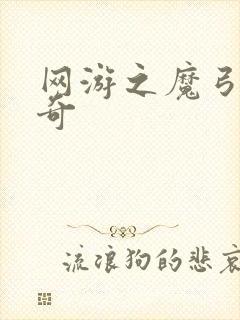 网游之魔弓
奇
流浪狗的悲哀